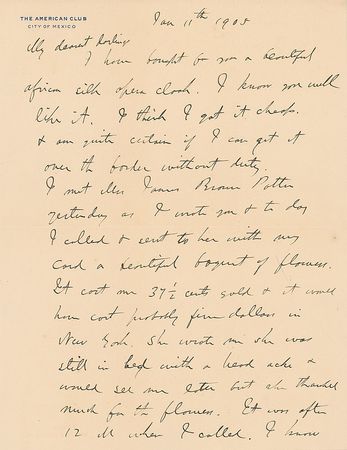 THE AMERICAN CLUB
CITY OF MEXICO
Jan 11th 1905
My dearest darling
I have bought for you a beautiful
african silk opera cloak. I know you will
like it. I think I got it cheap.
& am quite certain if I can get it
over the border without duty.
I met Mrs James Brown Potter
yesterday as I wrote you & to day
I called & sent to her with my
card a beautiful boquet of flowers.
It cost me 37½ cents gold & it would
have cost probably five dollars in
New York. She wrote me she was
still in bed with a head ache &
would see me later but she thanked
much for the flowers. It was after
12 M when I called. I know